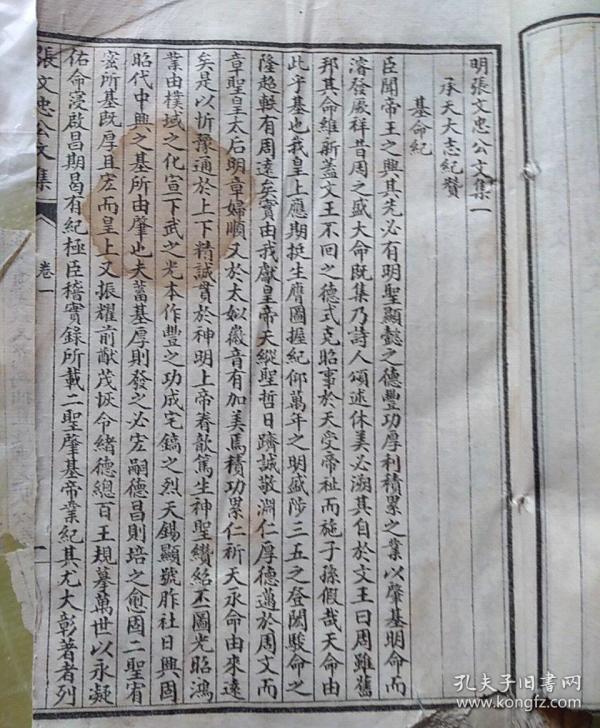 明張文忠公文集一
承天大志紀贊
基命紀
臣聞帝王之興其先必有明聖顯懿之德豐功厚利積累之業以肇基明命而
濬發厥祥昔周之盛大命既集乃詩人頌述休美必溯其自於文王曰周雖舊
邦其命維新蓋文王不回之德式克昭事於天受帝祉而施于孫子假哉天命由
此乎基也我皇上應期挺生膺圖握紀仰萬年之明盛陟三五之登閎駿命之
隆超軼有周遠矣實由我獻皇帝天縱聖哲日躋誠敬淵仁厚德邁於周文而
章聖皇太后明章婦順又於太姒徽音有加美焉積功累仁祈天永命由來遠
矣是以忻豫通於上下精誠貫於神明上帝眷歆篤生神聖纘紹丕圖光昭鴻
業由樸域之化宣下武之光本作豐之功成宅鎬之烈天錫顯號胙社日興周
昭代中興之基所由肇也夫蓄基厚則發之必宏嗣德昌則培之愈固二聖宥
宓所基既厚且宏而皇上又振耀前猷茂恢令緒德總百王規摹萬世以永凝
佑命寖啟昌期曷有紀極臣稽實錄所載二聖肇基帝業紀其尤大彰著者列
張文忠公文集
卷一
一
孔夫子旧书网